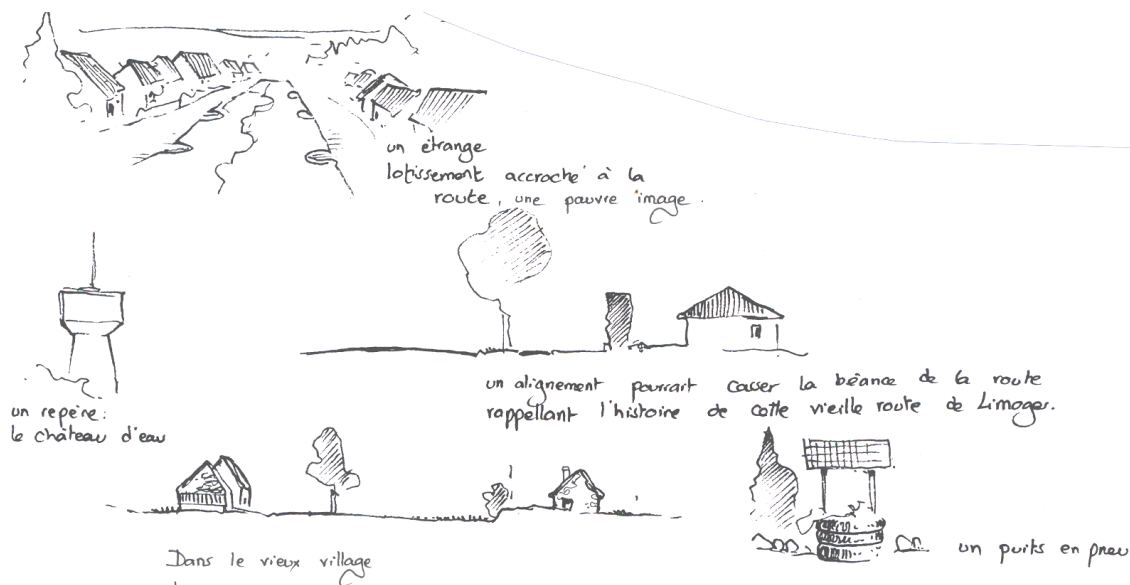 un étrange
lotissement accroché à la
route, une pauvre image.
un repère:
le château d'eau
un alignement pourrait casser la béance de la route
rappellant l'histoire de cette vieille route de Limoges.
Dans le vieux village
un puits en pneu